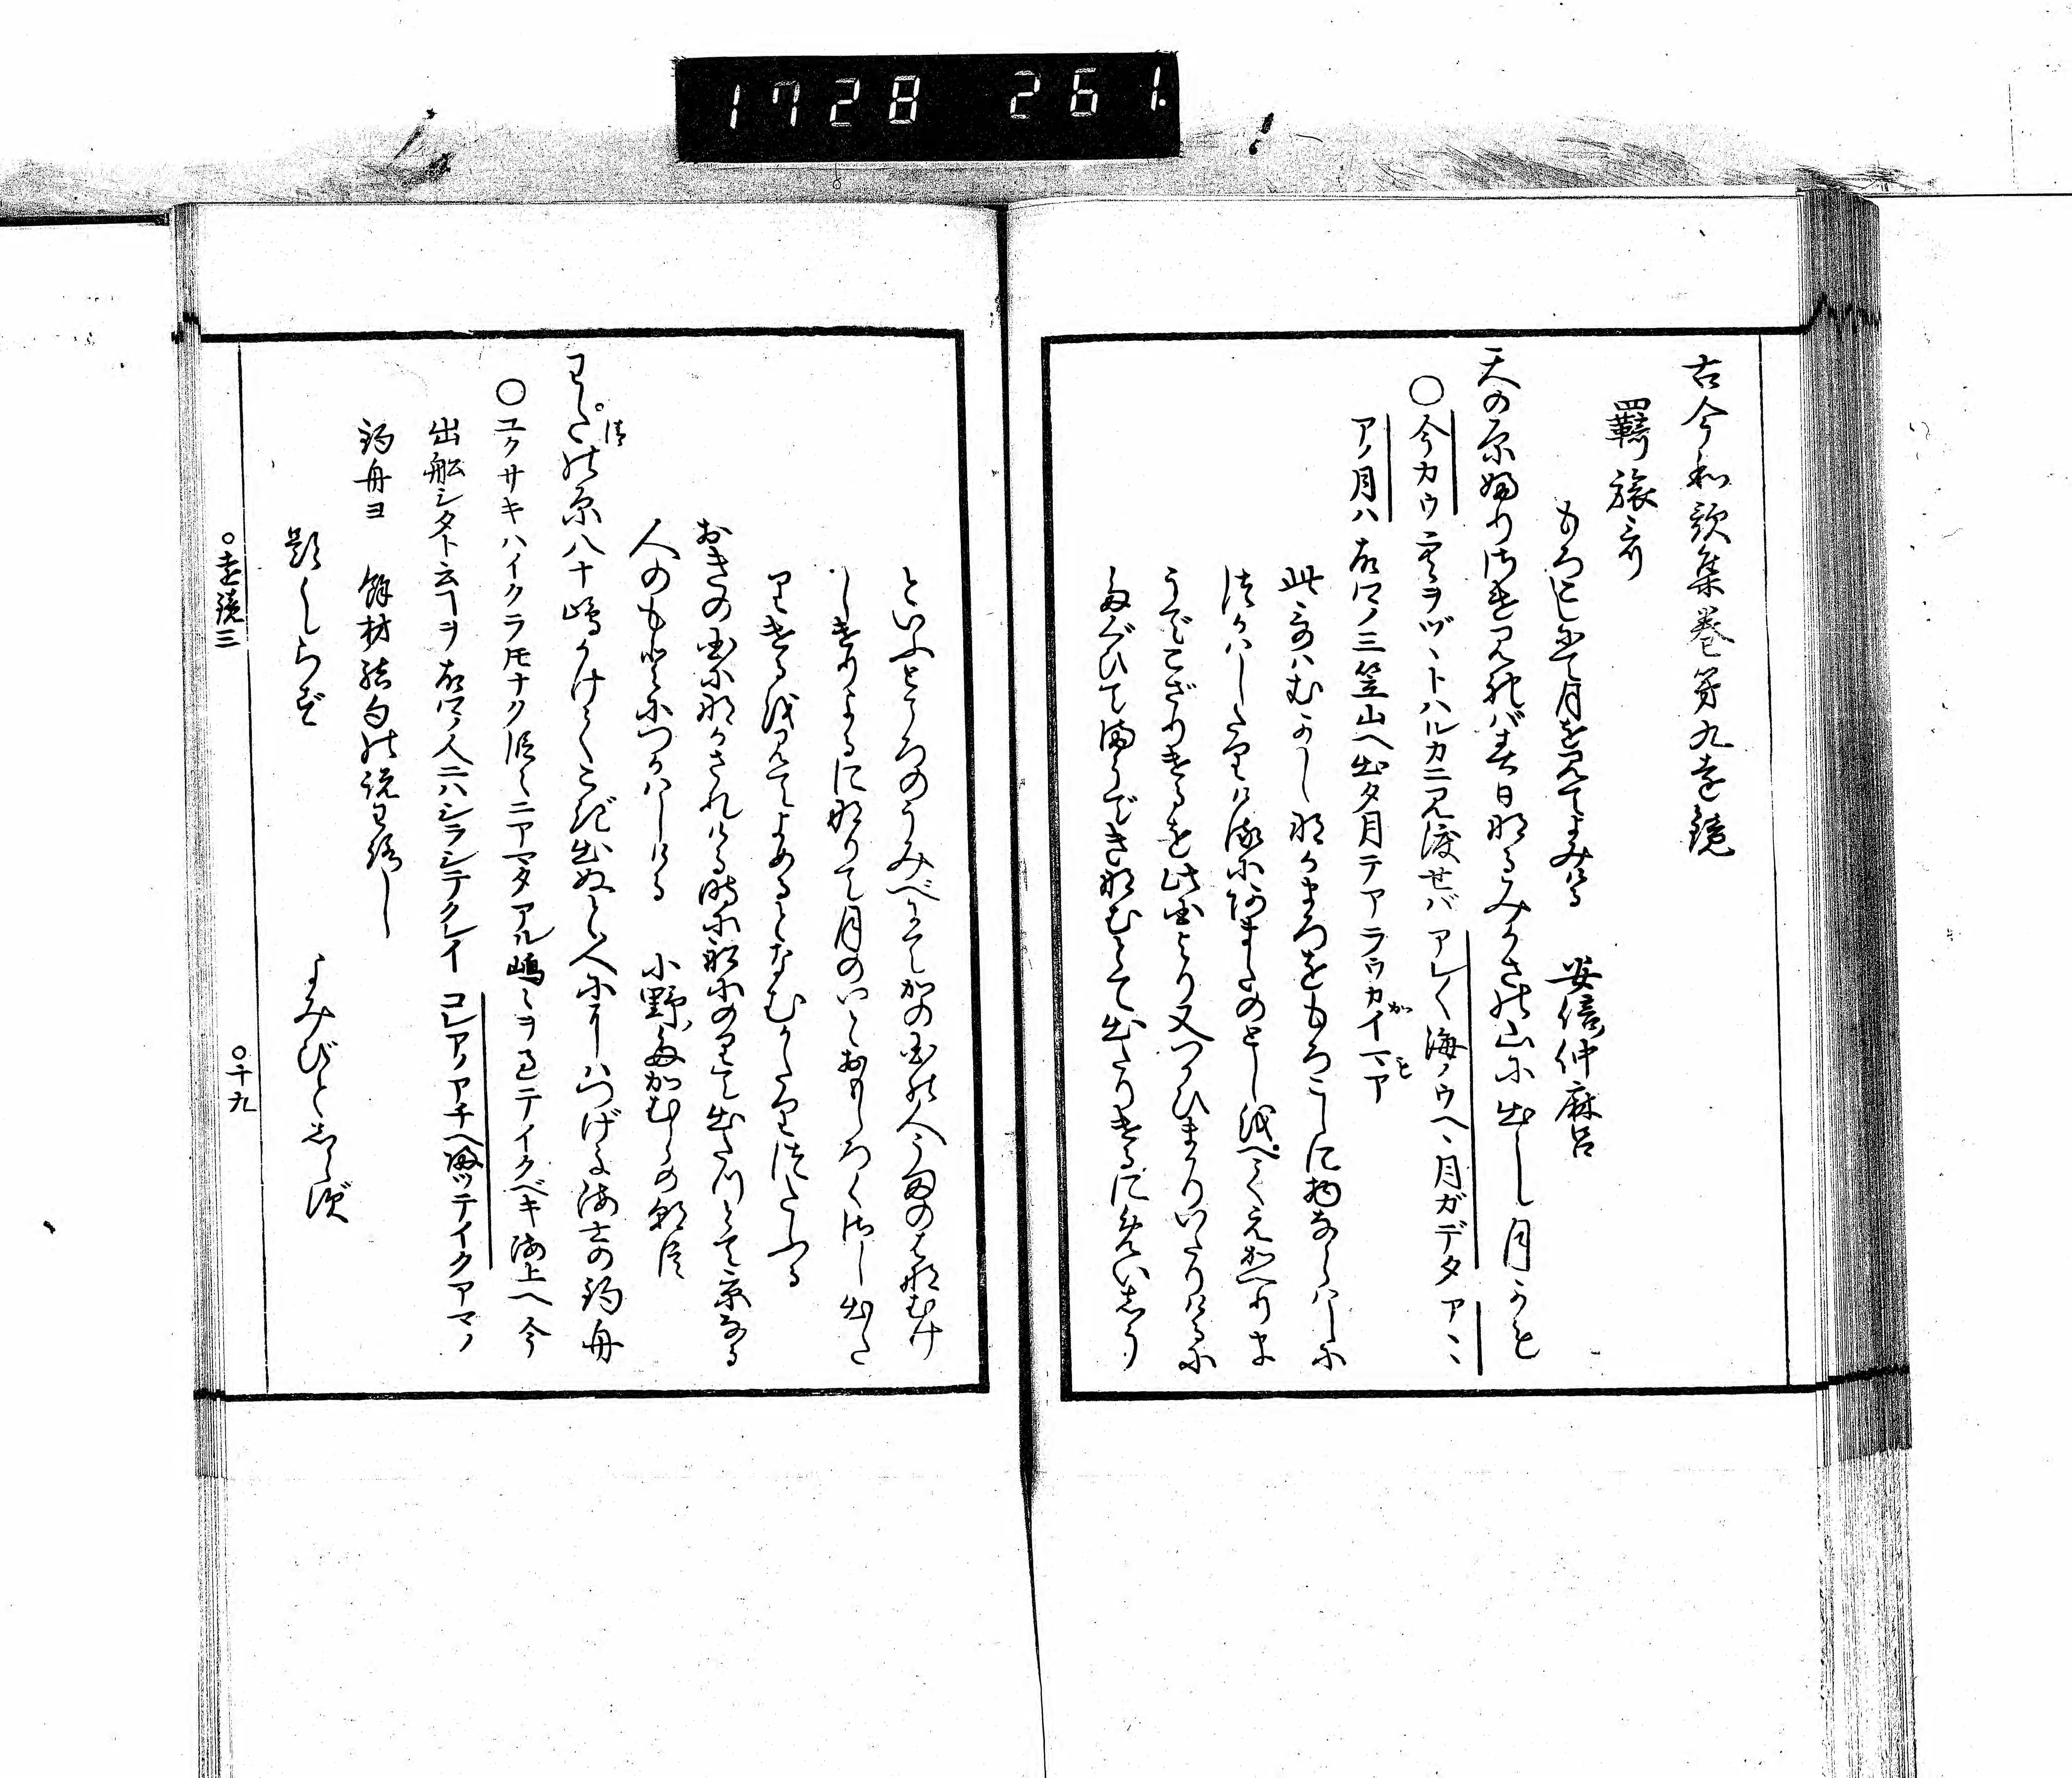 1728 261.
古今和歌集巻第九遠鏡
羇旅哥
もろこしにて月を見てよみける 安倍仲麻呂
天の原ふりさけ見れば春日なるみかさの山に出し月かも
○今カウ空ヲヅヽトハルカニ見渡セバアレ〱海ノウヘヽ月ガデタアヽヽ
アノ月ハ故郷ノ三笠山ヘ出タ月テアラウカイマア
此哥ハむかしなかまろをもろこしに物ならはしに
つかはしたりけるにあまたのとしをへてえかへりま
うでこざりけるを此国より又つかひまかりいたりけるに
たぐひてまうできなむとて出たりけるにめいしう
といふところのうみべにてかの国の人うまのはなむけ
しけりよるになりて月のいとおもしろくさし出た
りけるを見てよめるとなむかたりつたふる
おきの国にながされける時に船にのりて出たつとて京なる
人のもとにつかはしける 小野ノたかむらの朝臣
わたの原八十嶋かけてこぎ出ぬと人にハつげよ海士の釣舟
○ユクサキハイクラトモナク段々ニアマタアル嶋々ヲ見テイクベキ海上ヘ今
出船シタト云ヿヲ故郷ノ人ニハシラシテクレイ コレアノアチヘ漕ツテイクアマノ
釣舟ヨ 餘材結句の説わろし
題しらず よみびとしらず
○遠鏡三 ○十九